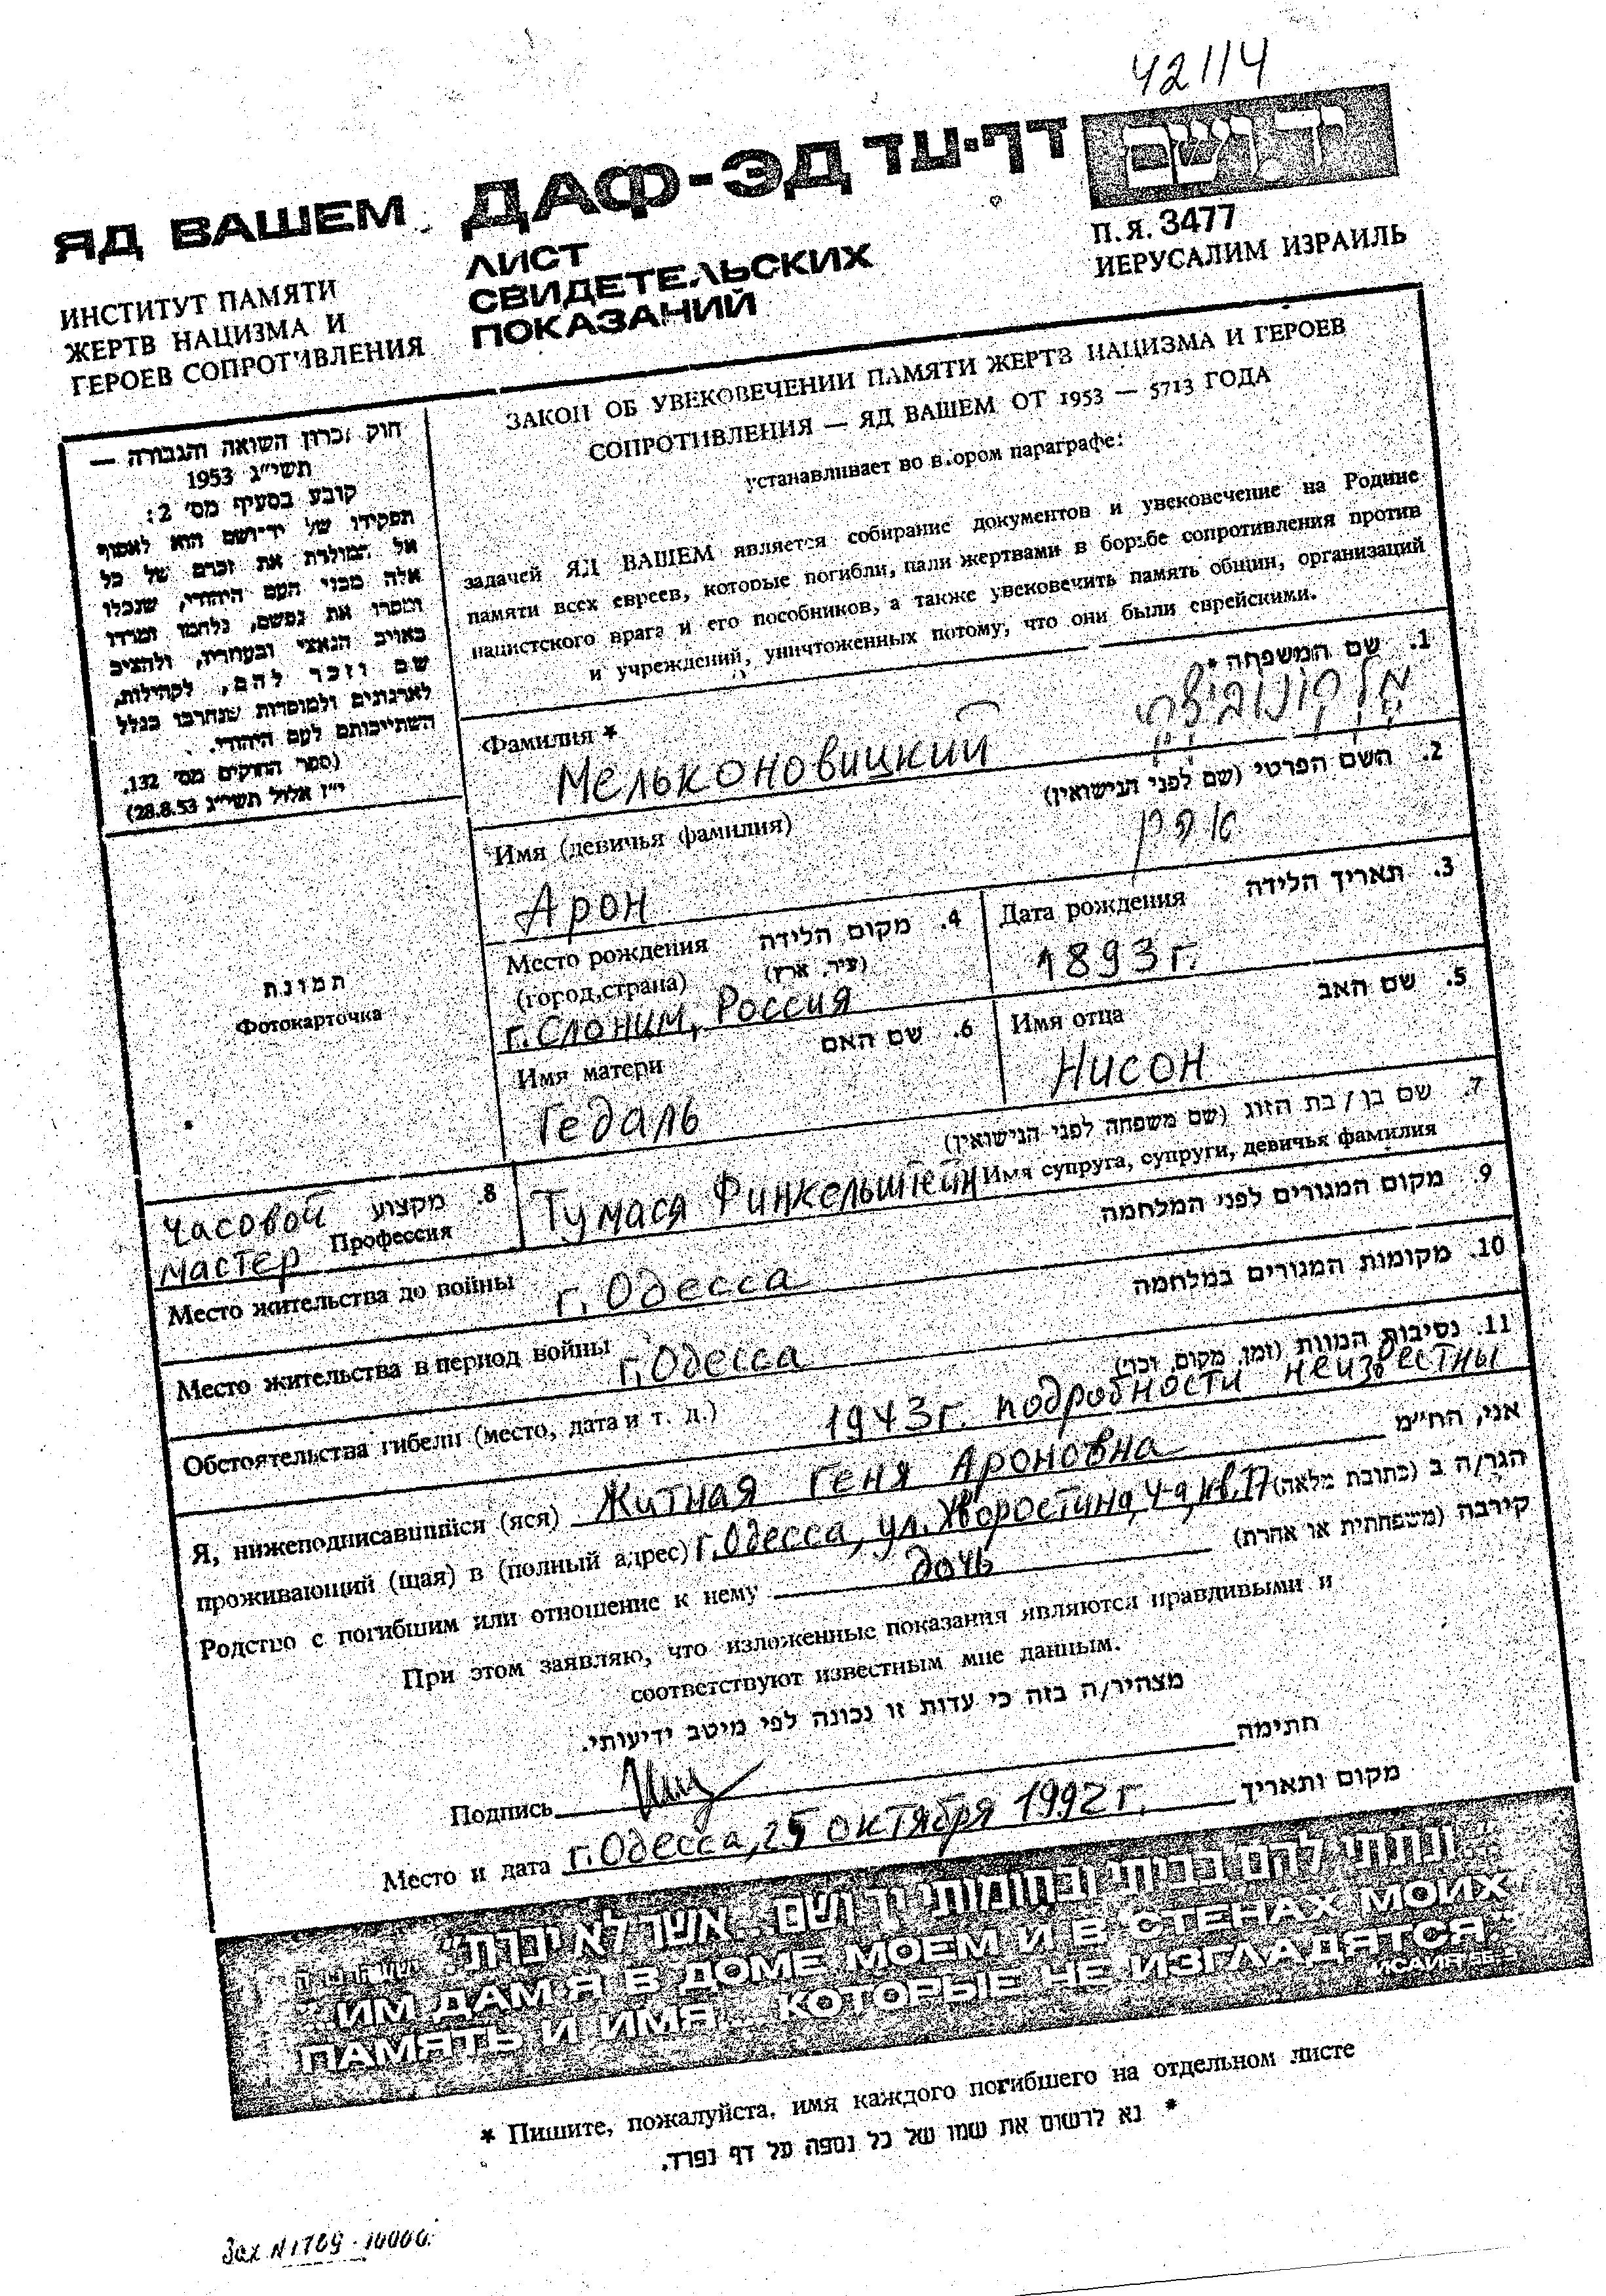 42114
ЯД ВАШЕМ ДАФ-ЭД דף-עד יד ושם
ИНСТИТУТ ПАМЯТИ
ЖЕРТВ НАЦИЗМА И
ГЕРОЕВ СОПРОТИВЛЕНИЯ
ЛИСТ
СВИДЕТЕЛЬСКИХ
ПОКАЗАНИЙ
П.Я. 3477
ИЕРУСАЛИМ ИЗРАИЛЬ
חוק זכרון השואה והגבורה —
תשי״ג 1953
קובע בסעיף מס׳ 2:
תפקידו של יד־ושם הוא לאסוף
אל המולדת את זכרם של כל
אלה מבני העם היהודי, שנפלו
ומסרו את נפשם, נלחמו ומרדו
באויב הנאצי ובעוזריו, ולהציב
שם וזכר להם, לקהילות,
לארגונים ולמוסדות שנחרבו בגלל
השתייכותם לעם היהודי.
(ספר החוקים מס׳ 132,
י״ז אלול תשי״ג 28.8.53)
ЗАКОН ОБ УВЕКОВЕЧЕНИИ ПАМЯТИ ЖЕРТВ НАЦИЗМА И ГЕРОЕВ
СОПРОТИВЛЕНИЯ — ЯД ВАШЕМ ОТ 1953 — 5713 ГОДА
устанавливает во втором параграфе:
задачей ЯД ВАШЕМ является собирание документов и увековечение на Родине
памяти всех евреев, которые погибли, пали жертвами в борьбе сопротивления против
нацистского врага и его пособников, а также увековечить память общин, организаций
и учреждений, уничтоженных потому, что они были еврейскими.
1. שם המשפחה *
Фамилия * מלקונוביצקי
Мельконовицкий
2. השם הפרטי (שם לפני הנישואין)
Имя (девичья фамилия) אהרן
Арон
3. תאריך הלידה Дата рождения
1893 г.
4. מקום הלידה Место рождения
(עיר, ארץ) (город,страна)
г. Слоним, Россия
5. שם האב
Имя отца
Нисон
6. שם האם
Имя матери
Гедаль
7. שם בן / בת הזוג (שם משפחה לפני הנישואין)
Имя супруга, супруги, девичья фамилия
Тумася Финкельштейн
8. מקצוע
Профессия
часовой
мастер
9. מקום המגורים לפני המלחמה
Место жительства до войны г. Одесса
10. מקומות המגורים במלחמה
Место жительства в период войны г. Одесса
11. נסיבות המוות (זמן, מקום, וכו׳)
Обстоятельства гибели (место, дата и т. д.) 1943 г. подробности неизвестны
אני, הח״מ
Я, нижеподписавшийся (яся) Житная Геня Ароновна
הגר/ה ב (כתובת מלאה)
проживающий (щая) в (полный адрес) г. Одесса, ул. Хворостина, 4-а, кв. 17
קירבה (משפחתית או אחרת)
Родство с погибшим или отношение к нему дочь
При этом заявляю, что изложенные показания являются правдивыми и
соответствуют известным мне данным.
מצהיר/ה בזה כי עדות זו נכונה לפי מיטב ידיעותי.
Подпись חתימה
Место и дата г. Одесса, 25 октября 1992 г. מקום ותאריך
״..ונתתי להם בביתי ובחומותי יד ושם... אשר לא יכרת״ ישעיהו נו, ה
"...ИМ ДАМ Я В ДОМЕ МОЕМ И В СТЕНАХ МОИХ
ПАМЯТЬ И ИМЯ... КОТОРЫЕ НЕ ИЗГЛАДЯТСЯ."
ИСАИЯ 56-5
* Пишите, пожалуйста, имя каждого погибшего на отдельном листе
* נא לרשום את שמו של כל נספה על דף נפרד.
Зак N 1789 - 10000